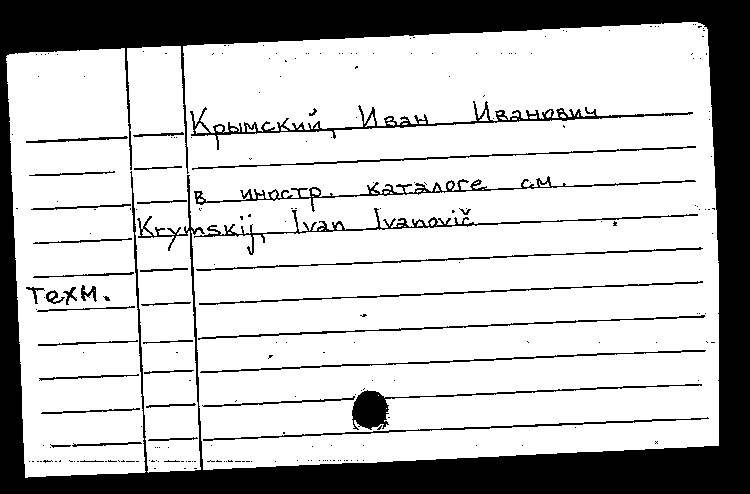 Крымский, Иван Иванович
в иностр. каталоге см.
Krymskij, Ivan Ivanovič
техм.